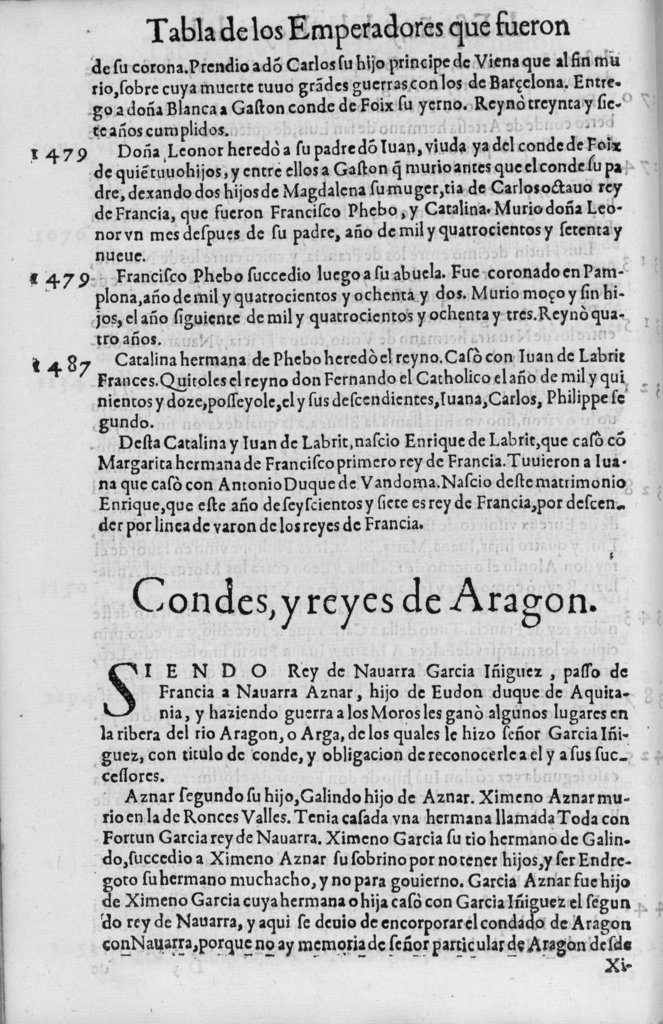 Tabla de los Emperadores que fueron
de su corona. Prendio a dõ Carlos su hijo principe de Viena que al fin mu
rio, sobre cuya muerte tuuo grãdes guerras con los de Barçelona. Entre-
go a doña Blanca a Gaston conde de Foix su yerno. Reynò treynta y sie-
te años cumplidos.
1479 Doña Leonor heredò a su padre dõ Iuan, viuda ya del conde de Foix
de quiẽ tuuo hijos, y entre ellos a Gaston q̃ murio antes que el conde su pa
dre, dexando dos hijos de Magdalena su muger, tia de Carlos octauo rey
de Francia, que fueron Francisco Phebo, y Catalina. Murio doña Leo-
nor vn mes despues de su padre, año de mil y quatrocientos y setenta y
nueue.
1479 Francisco Phebo succedio luego a su abuela. Fue coronado en Pam-
plona, año de mil y quatrocientos y ochenta y dos. Murio moço y sin hi-
jos, el año siguiente de mil y quatrocientos y ochenta y tres. Reynò qua-
tro años.
1487 Catalina hermana de Phebo heredò el reyno. Casò con Iuan de Labrit
Frances. Quitoles el reyno don Fernando el Catholico el año de mil y qui
nientos y doze, posseyole, el y sus descendientes, Iuana, Carlos, Philippe se
gundo.
Desta Catalina y Iuan de Labrit, nascio Enrique de Labrit, que casò cõ
Margarita hermana de Francisco primero rey de Francia. Tuuieron a Iua-
na que casò con Antonio Duque de Vandoma. Nascio deste matrimonio
Enrique, que este año de seyscientos y siete es rey de Francia, por descen-
der por linea de varon de los reyes de Francia.
Condes, y reyes de Aragon.
SIENDO Rey de Nauarra Garcia Iñiguez, passo de
Francia a Nauarra Aznar, hijo de Eudon duque de Aquita-
nia, y haziendo guerra a los Moros les ganò algunos lugares en
la ribera del rio Aragon, o Arga, de los quales le hizo señor Garcia Iñi-
guez, con titulo de conde, y obligacion de reconocerle a el y a sus suc-
cessores.
Aznar segundo su hijo, Galindo hijo de Aznar. Ximeno Aznar mu-
rio en la de Ronces Valles. Tenia casada vna hermana llamada Toda con
Fortun Garcia rey de Nauarra. Ximeno Garcia su tio hermano de Galin-
do, succedio a Ximeno Aznar su sobrino por no tener hijos, y ser Endre-
goto su hermano muchacho, y no para gouierno. Garcia Aznar fue hijo
de Ximeno Garcia cuya hermana o hija casò con Garcia Iñiguez el segun
do rey de Nauarra, y aqui se deuio de encorporar el condado de Aragon
con Nauarra, porque no ay memoria de señor particular de Aragon desde
Xi-